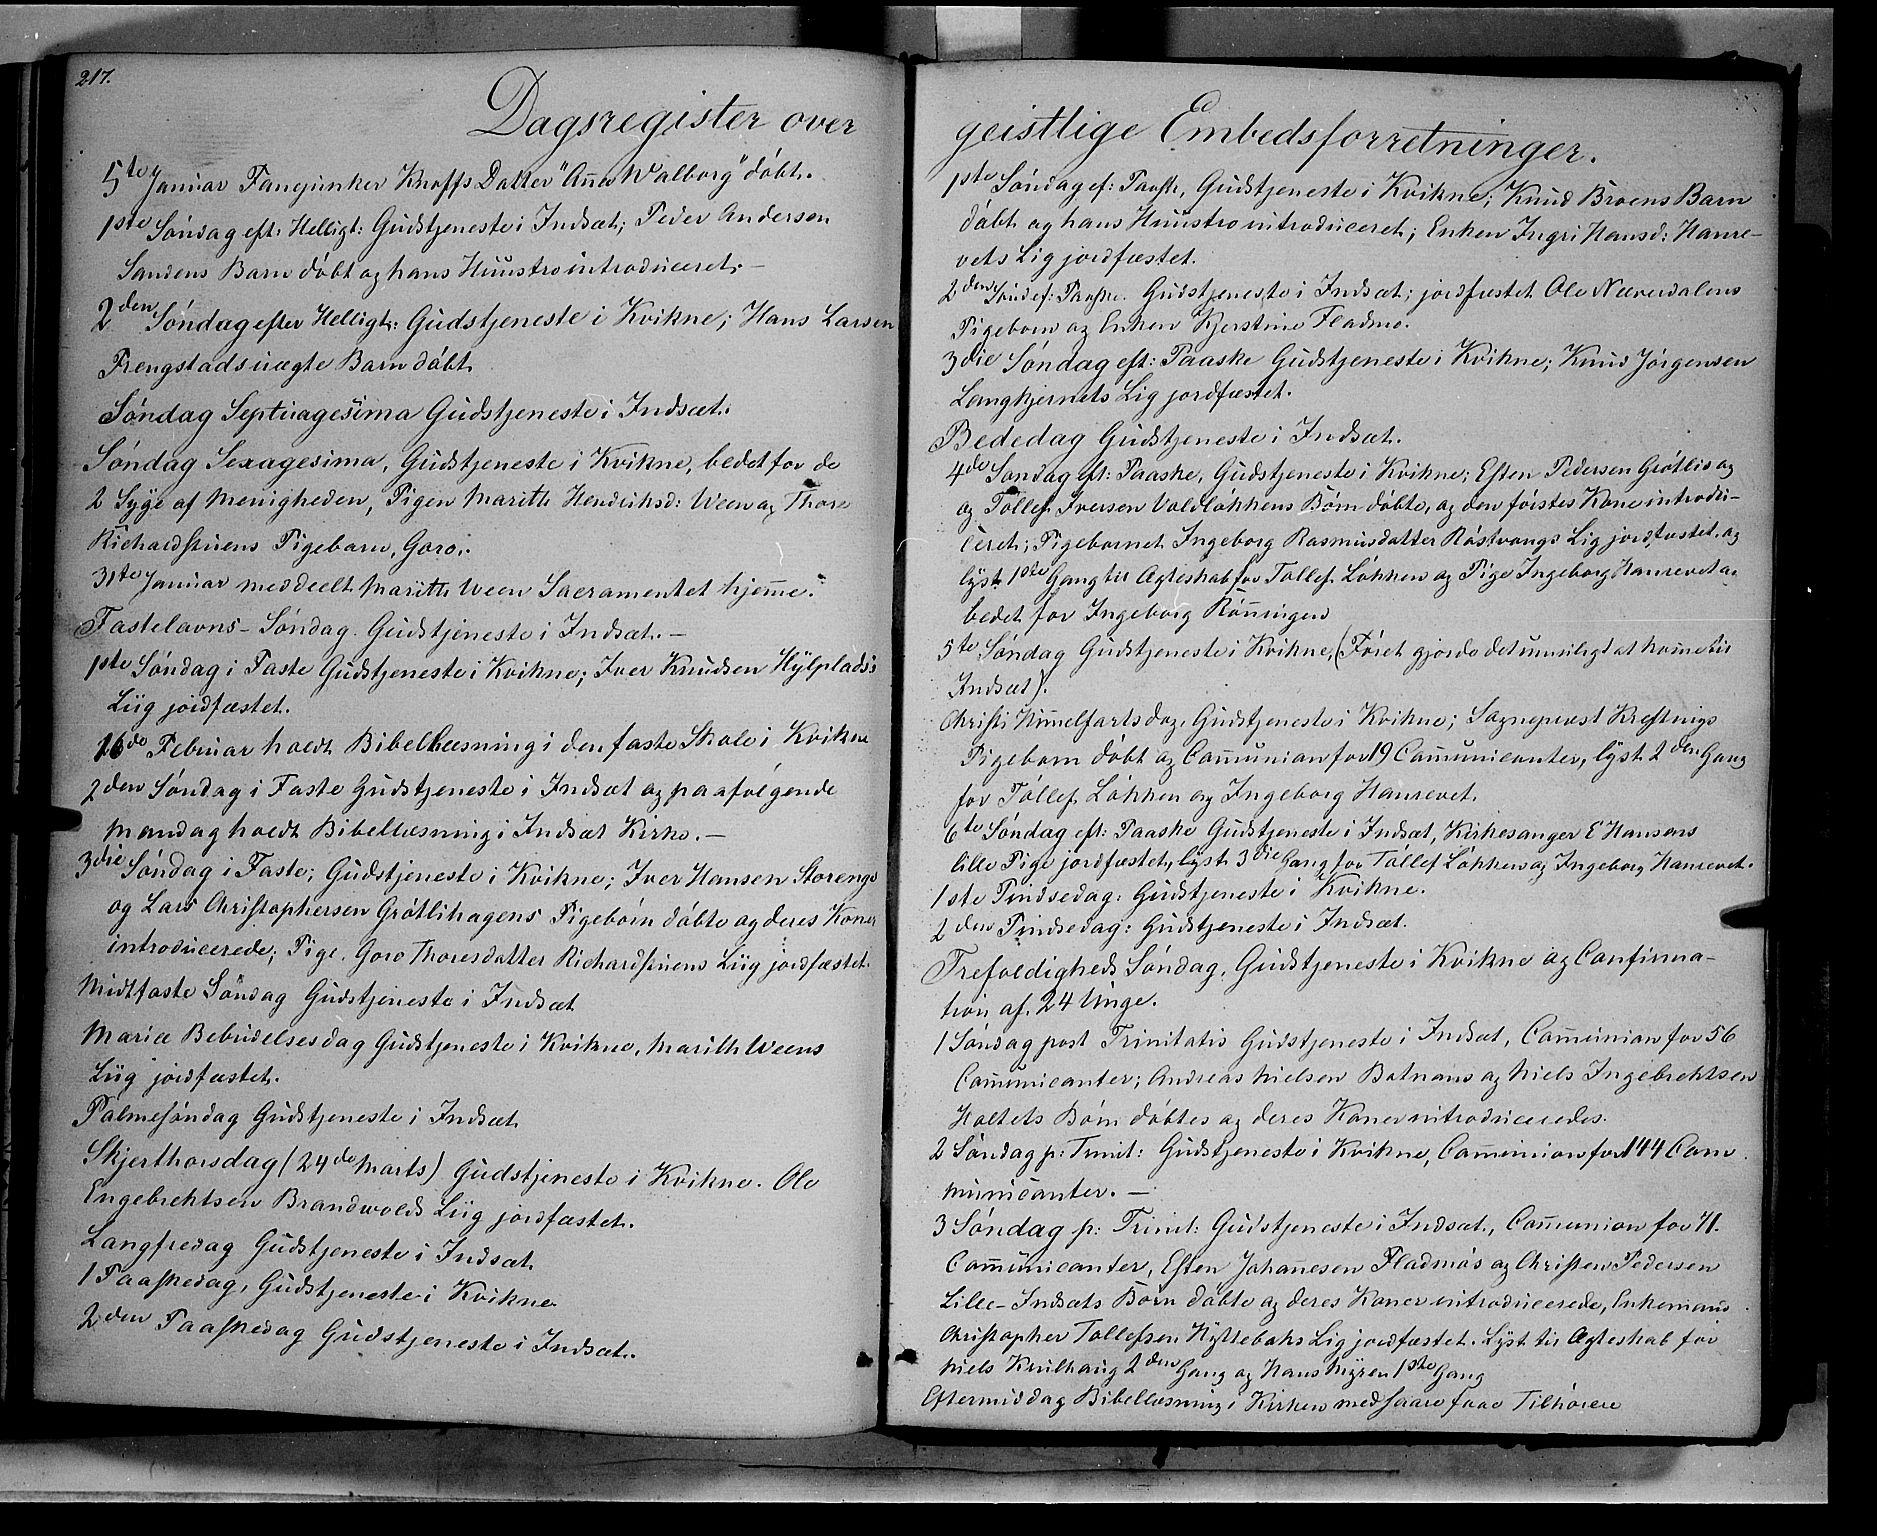 217.
Dagsregister over
5te Januar Fanejunker Knoffs Datter "Anna Walborg" døbt.
1ste Søndag eft: Helligt: Gudstjeneste i Indsæt; Peder Andersen
Sandens Barn døbt og hans Huustro introduceret. —
2den Søndag efter Helligt: Gudstjeneste i Kvikne; Hans Larsen
Frengstads uægte Barn døbt.
Søndag Septuagesima Gudstjeneste i Indsæt.
Søndag Sexagesima, Gudstjeneste i Kvikne, bedet for de
2 Syge af Menigheden, Pigen Marith Hendriksd: Ween og Thore
Richardstuens Pigebarn, Goro.
31te Januar meddeelt Marith Ween Sacramentet hjem̄e.
Fastelavns-Søndag. Gudstjeneste i Indsæt. —
1ste Søndag i Faste Gudstjeneste i Kvikne; Iver Knudsen Hylplads's
Liig jordfæstet.
16de Februar holdt Bibellæsning i den faste Skole i Kvikne
2den Søndag i Faste Gudstjeneste i Indsæt og paafølgende
Mandag holdt Bibellæsning i Indsæt Kirke. —
3die Søndag i Faste; Gudstjeneste i Kvikne; Iver Hansen Storengs
og Lars Christophersen Grøtlihagens Pigebørn døbte og deres Koner
introducerede; Pige. Goro Thoresdatter Richardstuens Liig jordfæstet.
Midtfaste Søndag Gudstjeneste i Indsæt
Mariæ Bebudelsesdag Gudstjeneste i Kvikne, Marith Weens
Liig jordfæstet.
Palmesøndag Gudstjeneste i Indsæt
Skjerthorsdag (24de Marts) Gudstjeneste i Kvikne. Ole
Engebrektsen Brandvolds Liig jordfæstet.
Langfredag Gudstjeneste i Indsæt
1 Paaskedag, Gudstjeneste i Kvikne
2den Paaskedag Gudstjeneste i Indsæt.
geistlige Embedsforretninger.
1ste Søndag ef: Paaske, Gudstjeneste i Kvikne; Knud Broens Barn
døbt og hans Huustro introduceret; Enken Ingri Hansd: Hanre-
vets Lig jordfæstet.
2den Sønd ef: Paaske. Gudstjeneste i Indsæt; jordfæstet Ole Næverdalens
Pigebarn og Enken Kjerstine Fladmo.
3die Søndag eft: Paaske Gudstjeneste i Kvikne; Knud Jørgensen
Langkjernets Lig jordfæstet.
Bededag Gudstjeneste i Indsæt.
4de Søndag eft: Paaske, Gudstjeneste i Kvikne; Esten Pedersen Grøtlis og
og Tollef Iversen Voldløkkens Børn døbte, og den førstes Kone introdu-
ceret; Pigebarnet Ingeborg Rasmusdatter Røstvangs Lig jordfæstet. og
lyst 1ste Gang til Ægteskab for Tollef Løkken og Pige Ingeborg Hanrevet og
bedet for Ingeborg Røn̄ingen
5te Søndag Gudstjeneste i Kvikne, (Føret gjorde det umuligt at kom̄e til
Indsæt).
Christi Him̄elfartsdag. Gudstjeneste i Kvikne; Sogneprest Krefting's
Pigebarn døbt og Com̄union for 19 Com̄unicanter, lyst 2den Gang
for Tøllef Løkken og Ingeborg Hanrevet.
6te Søndag eft: Paaske Gudstjeneste i Indsæt, Kirkesanger E Hansens
lille Pige jordfæstet, lyst 3die Gang for Tøllef Løkken og Ingeborg Hanrevet.
1ste Pindsedag: Gudstjeneste i Kvikne.
2den Pindsedag: Gudstjeneste i Indsæt.
Trefoldigheds Søndag, Gudstjeneste i Kvikne og Confirma-
tion af 24 Unge.
1 Søndag post Trinitatis Gudstjeneste i Indsæt, Com̄union for 56
Com̄unicanter; Andreas Nielsen Botnans og Niels Ingebrektsen
Holtets Børn døbtes og deres Koner introduceredes.
2 Søndag p: Trinit: Gudstjeneste i Kvikne, Com̄union for 144 Com
municanter. —
3 Søndag p: Trinit: Gudstjeneste i Indsæt, Com̄union for 71.
Com̄unicanter, Esten Johan̄esen Fladmos og Christen Pedersen
Lille-Indsæts Børn døbte og deres Koner introducerede, Enkemand
Christopher Tollefsen Hyttebaks Lig jordfæstet. Lyst til Ægteskab for
Niels Krulhaug 2den Gang og Hans Myren 1ste Gang
Eftermiddag Bibellæsning i Kirken med saare faae Tilhørere